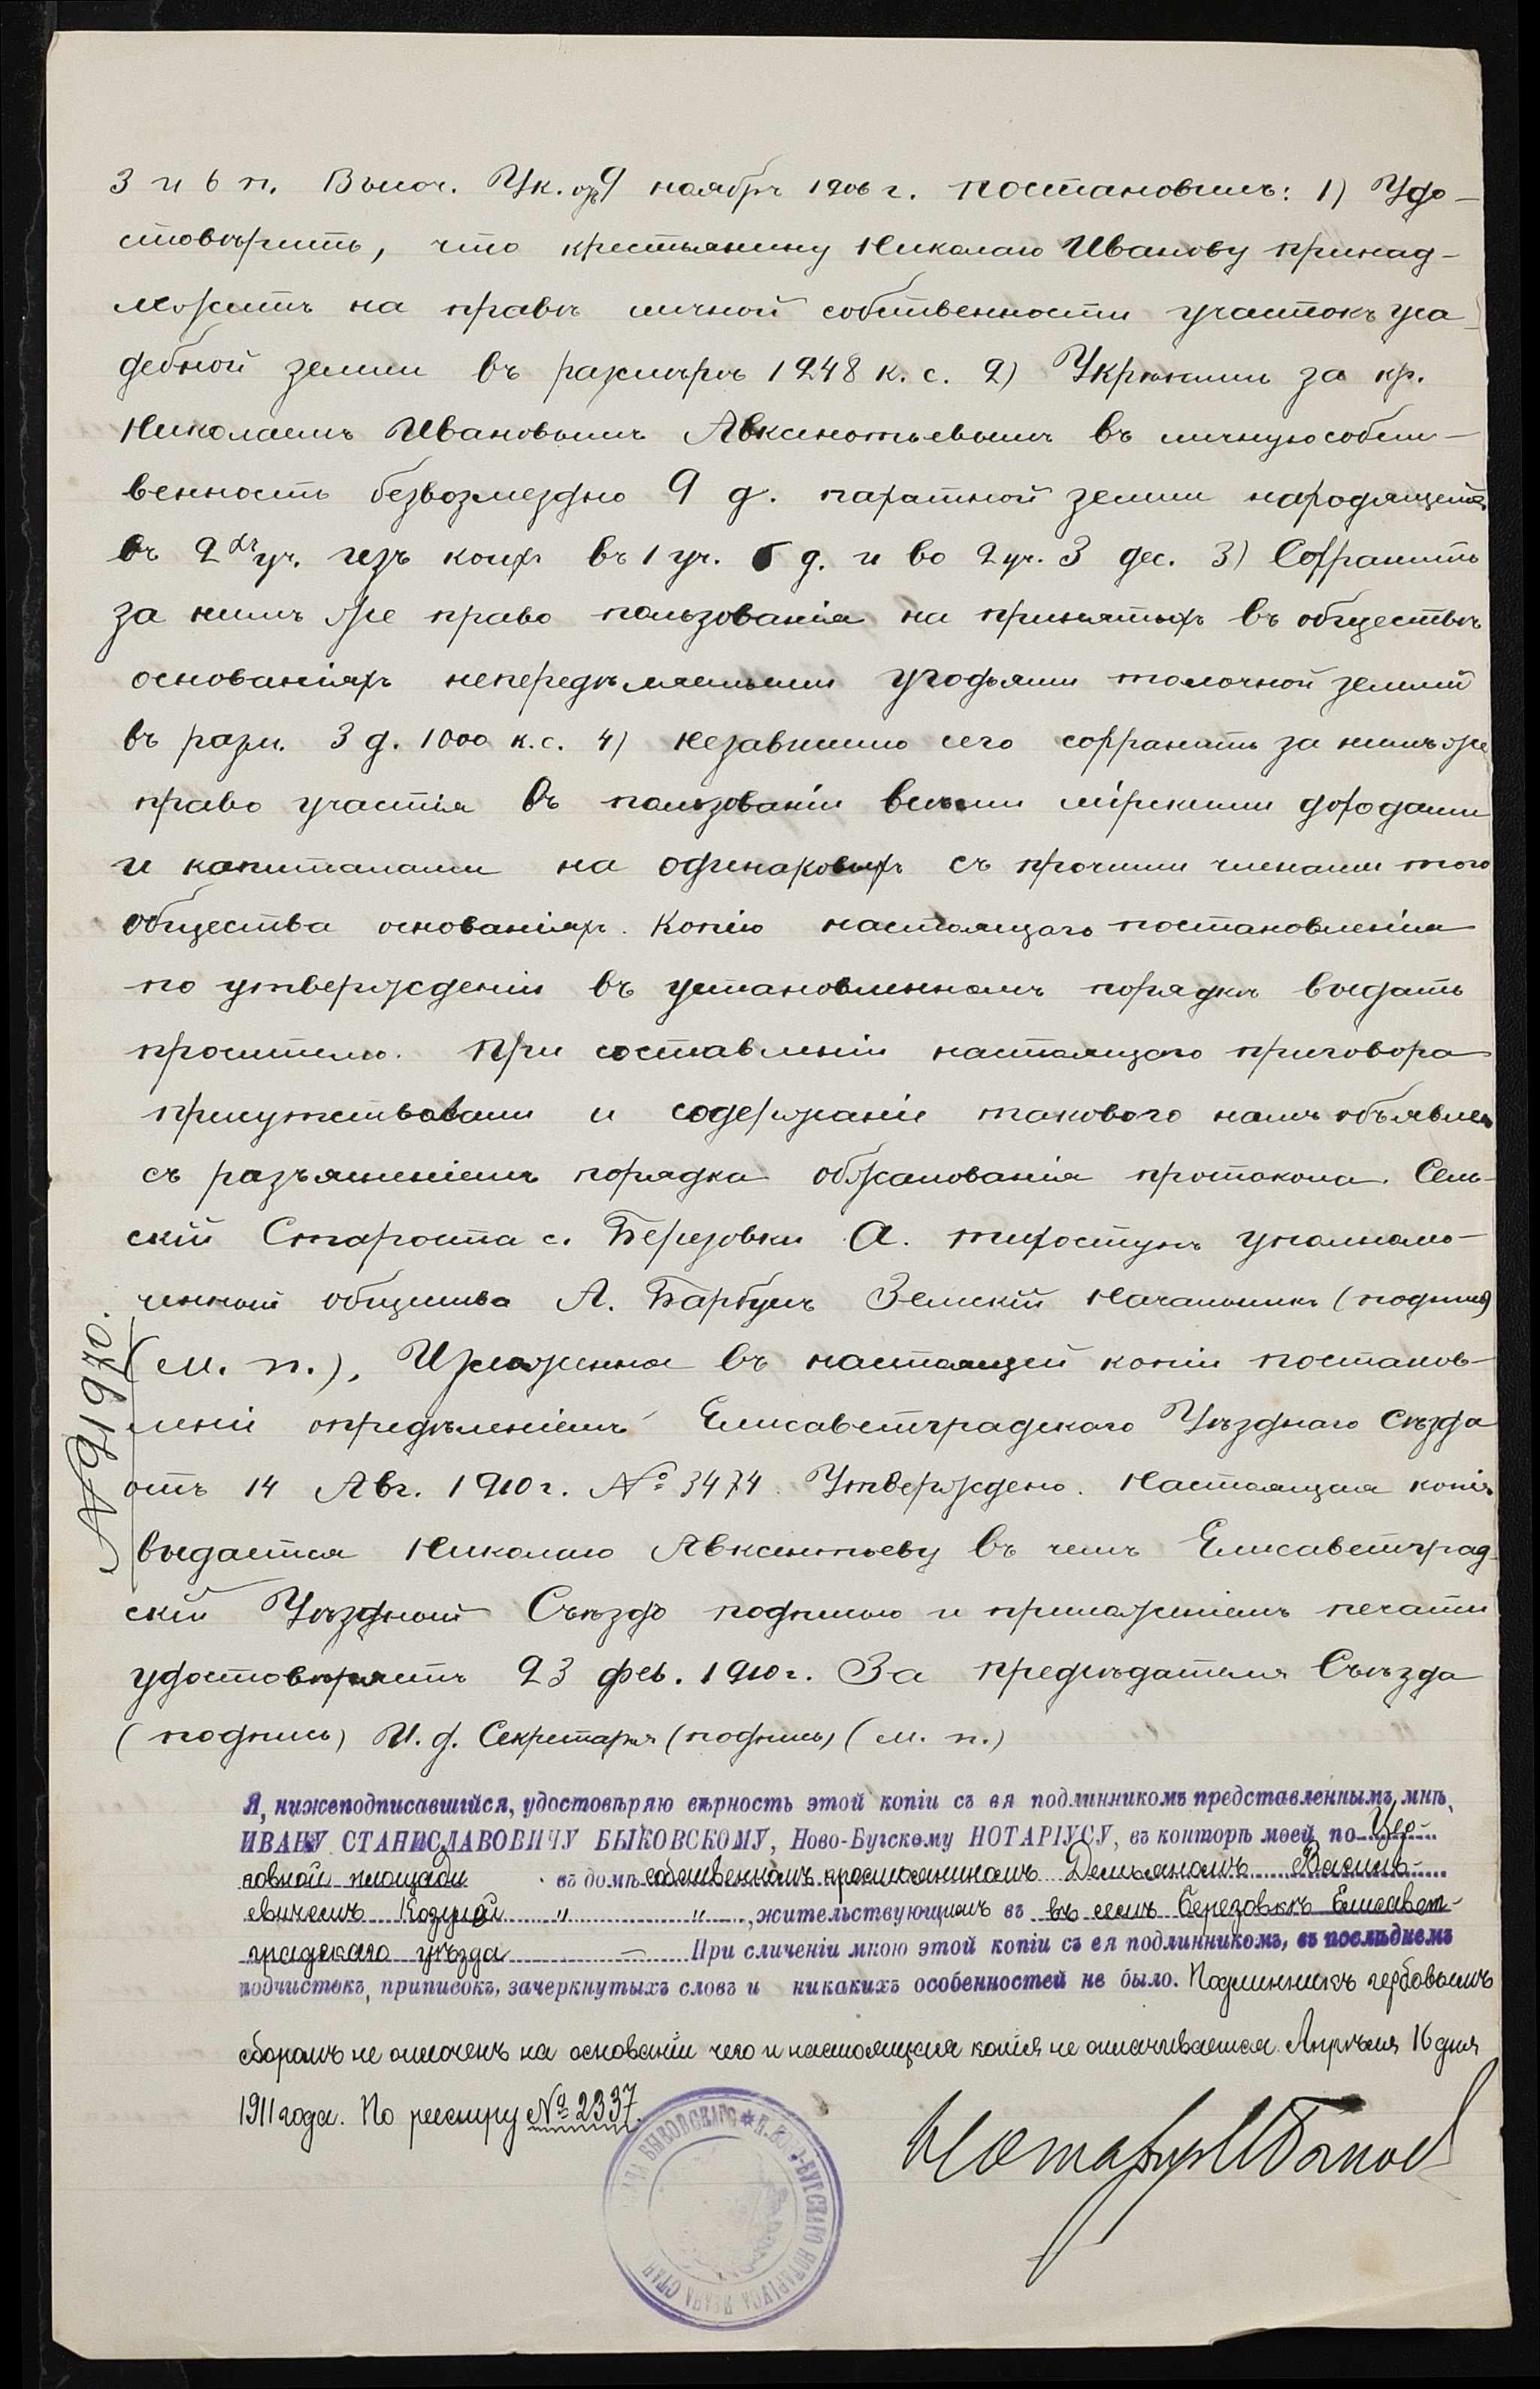 3 и 6 п. Высоч. Ук. отъ 9 ноября 1906 г. постановилъ: 1) Удо-
стовѣрить, что крестьянину Николаю Иванову принад-
лежитъ на правѣ личной собственности участокъ уса-
дебной земли въ размѣрѣ 1248 к. с. 2) Укрѣпить за кр.
Николаемъ Ивановымъ Авксентьевымъ въ личную собст-
венность безвозмездно 9 д. пахатной земли находящейся
въ 2хъ уч. изъ коихъ въ 1 уч. 6 д. и во 2 уч. 3 дес. 3) Сохранить
за нимъ же право пользованія на принятыхъ въ обществѣ
основаніяхъ непередѣляемыми угодьями толочной землей
въ разм. 3 д. 1000 к. с. 4) Независимо сего сохранить за нимъ же
право участія въ пользованіи всѣми мірскими доходами
и капиталами на одинаковыхъ съ прочими членами того
общества основаніяхъ. Копію настоящаго постановленія
по утвержденіи въ установленномъ порядкѣ выдать
просителю. При составленіи настоящаго приговора
присутствовали и содержаніе такового намъ объявлено
съ разъясненіемъ порядка обжалованія протокола. Сель-
скій Староста с. Березовки А. уполномо-
ченный общества А. Барбулъ Земскій Начальникъ (подпись)
(м. п.), Изложенное въ настоящей копіи постанов-
леніе опредѣленіемъ Елисаветградскаго Уѣзднаго Съѣзда
отъ 14 Авг. 1910 г. № 3474. Утверждено. Настоящая копія
выдается Николаю Авксентьеву въ чемъ Елисаветград-
скій Уѣздный Съѣздъ подписью и приложеніемъ печати
удостовѣряетъ 23 фев. 1910 г. За предсѣдателя Съѣзда
(подпись) И. д. Секретаря (подпись) (м. п.)
№ 91970.
Я, нижеподписавшійся, удостовѣряю вѣрность этой копіи съ ея подлинникомъ представленнымъ, мнѣ,
ИВАНУ СТАНИСЛАВОВИЧУ БЫКОВСКОМУ, Ново-Бугскому НОТАРІУСУ, въ конторѣ моей по Цер-
ковной площади въ домѣ собственномъ крестьяниномъ Демьяномъ Василь-
евичемъ " " , жительствующимъ въ въ селѣ Березовкѣ Елисавет-
градскаго уѣзда — При сличеніи мною этой копіи съ ея подлинникомъ, въ послѣднемъ
подчистокъ, приписокъ, зачеркнутыхъ словъ и никакихъ особенностей не было. Подлинникъ гербовымъ
сборомъ не оплоченъ на основаніи чего и настоящая копія не оплачивается. Апрѣля 16 дня
1911 года. По реестру № 2337.
Нотаріусъ
Н.-НОВО-БУГСКАГО НОТАРІУСА ИВАНА СТАНИСЛАВА БЫКОВСКАГО